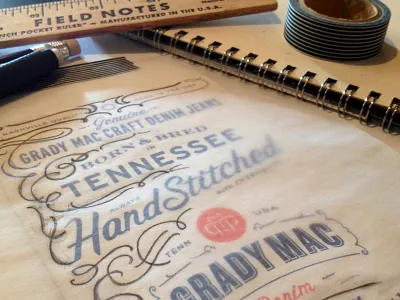 FIELD NOTES
INCH POCKET RULER" — MANUFACTURED IN THE U.S.A.
NASHVILLE
Genuine
GRADY MAC CRAFT DENIM JEANS
BORN & BRED
IN
TENNESSEE
ALWAYS
Hand Stitched
WITH
TENN
USA
GRADY MAC
Denim